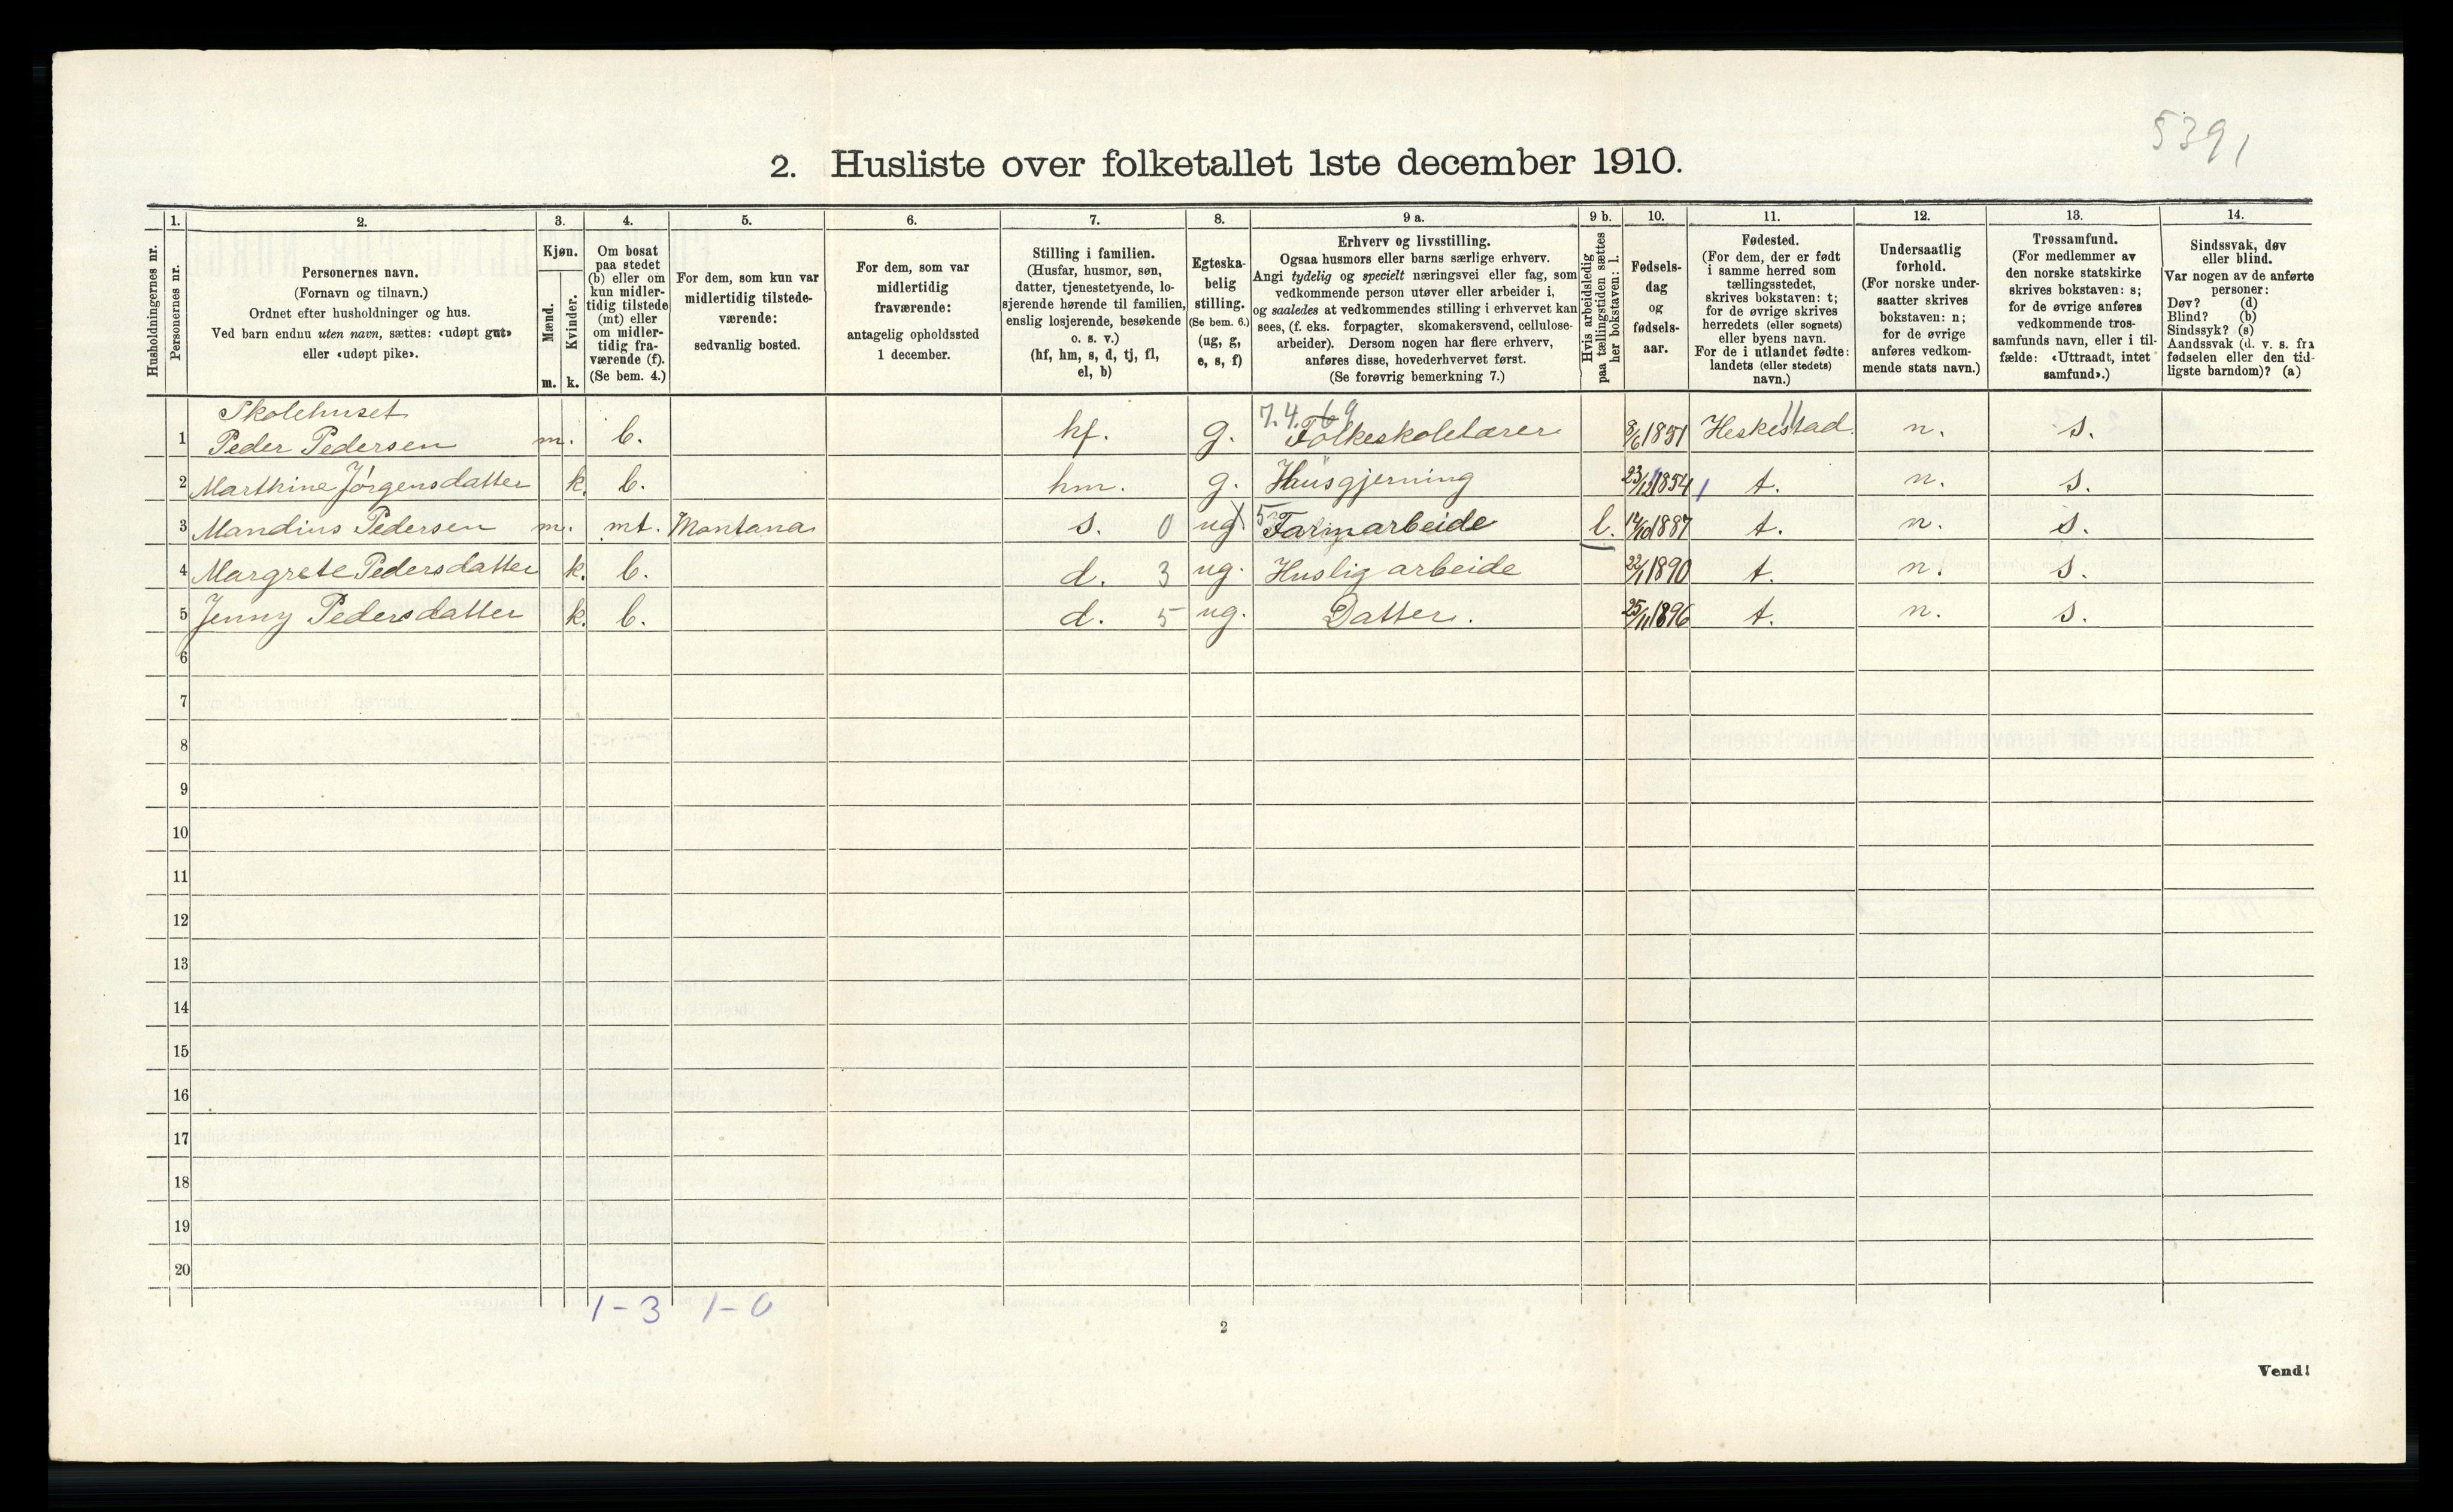 5391
2. Husliste over folketallet 1ste december 1910.
Husholdningernes nr.
1.
Personernes nr.
2.
Personernes navn.
(Fornavn og tilnavn.)
Ordnet efter husholdninger og hus.
Ved barn endnu uten navn, sættes: «udøpt gut»
eller «udøpt pike».
3.
Kjøn.
Mænd.
Kvinder.
m. k.
4.
Om bosat
paa stedet
(b) eller om
kun midler-
tidig tilstede
(mt) eller
om midler-
tidig fra-
værende (f).
(Se bem. 4.)
5.
For dem, som kun var
midlertidig tilstede-
værende:
sedvanlig bosted.
6.
For dem, som var
midlertidig
fraværende:
antagelig opholdssted
1 december.
7.
Stilling i familien.
(Husfar, husmor, søn,
datter, tjenestetyende, lo-
sjerende hørende til familien,
enslig losjerende, besøkende
o. s. v.)
(hf, hm, s, d, tj, fl,
el, b)
8.
Egteska-
belig
stilling.
(Se bem. 6.)
(ug, g,
e, s, f)
9 a.
Erhverv og livsstilling.
Ogsaa husmors eller barns særlige erhverv.
Angi tydelig og specielt næringsvei eller fag, som
vedkommende person utøver eller arbeider i,
og saaledes at vedkommendes stilling i erhvervet kan
sees, (f. eks. forpagter, skomakersvend, cellulose-
arbeider). Dersom nogen har flere erhverv,
anføres disse, hovederhvervet først.
(Se forøvrig bemerkning 7.)
9 b.
Hvis arbeidsledig
paa tællingstiden sættes
her bokstaven: l.
10.
Fødsels-
dag
og
fødsels-
aar.
11.
Fødested.
(For dem, der er født
i samme herred som
tællingsstedet,
skrives bokstaven: t;
for de øvrige skrives
herredets (eller sognets)
eller byens navn.
For de i utlandet fødte:
landets (eller stedets)
navn.)
12.
Undersaatlig
forhold.
(For norske under-
saatter skrives
bokstaven: n;
for de øvrige
anføres vedkom-
mende stats navn.)
13.
Trossamfund.
(For medlemmer av
den norske statskirke
skrives bokstaven: s;
for de øvrige anføres
vedkommende tros-
samfunds navn, eller i til-
fælde: «Uttraadt, intet
samfund».)
14.
Sindssvak, døv
eller blind.
Var nogen av de anførte
personer:
Døv? (d)
Blind? (b)
Sindssyk? (s)
Aandssvak (d. v. s. fra
fødselen eller den tid-
ligste barndom)? (a)
Skolehuset
1 Peder Pedersen m. b. hf. g. Folkeskolelærer 8/6 1851 Heskestad. n. s.
2 Marthine Jørgensdatter k. b. hm. g. Husgjerning 23/12 1854 t. n. s.
3 Mandius Pedersen m. mt. Montana s. 0 ug. 5 Farmarbeide l. 14/10 1887 t. n. s.
4 Margrete Pedersdatter k. b. d. 3 ug. Huslig arbeide 22/1 1890 t. n. s.
5 Jenny Pedersdatter k. b. d. 5 ug. Datter. 25/11 1896 t. n. s.
6
7
8
9
10
11
12
13
14
15
16
17
18
19
20
1-3 1-0
2
Vend!